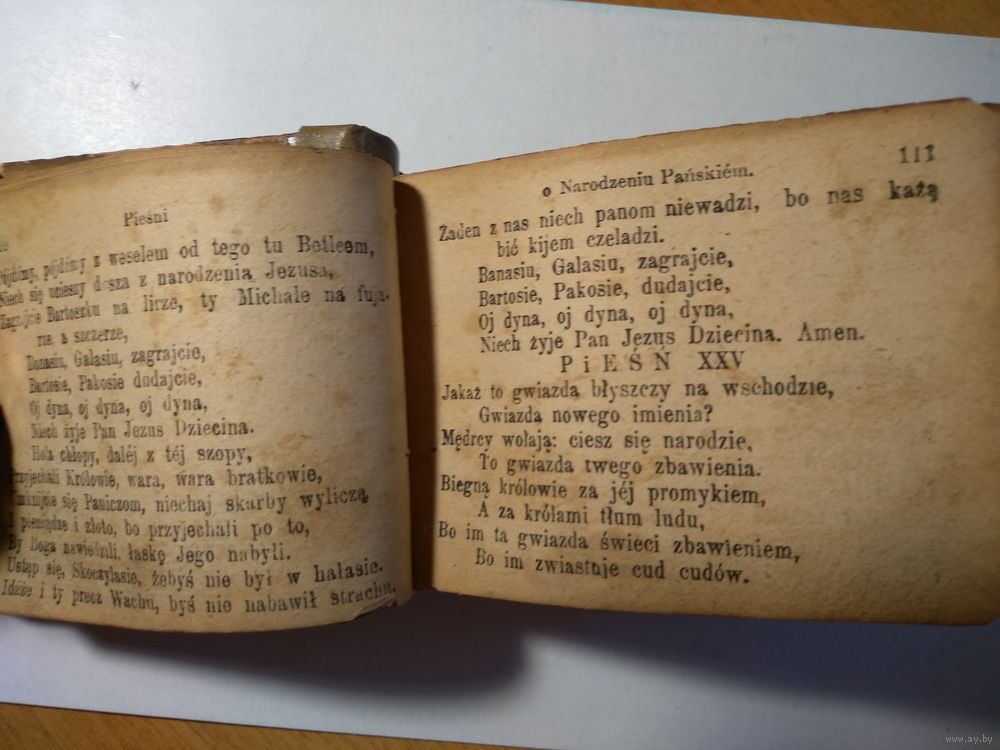 Pieśni
Pójdźmy, pójdźmy z weselem od tego tu Betleem,
Niech się ucieszy dusza z narodzenia Jezusa,
Zagrajcie Bartoszku na lirze, ty Michale na fuja-
rze, a szczerze,
Banasiu, Galasiu, zagrajcie,
Bartosie, Pakosie dudajcie,
Oj dyna, oj dyna, oj dyna,
Niech żyje Pan Jezus Dziecina.
Hola chłopy, daléj z téj szopy,
Przyjechali Królowie, wara, wara bratkowie,
się Paniczom, niechaj skarby wyliczą
I pieniądze i złoto, bo przyjechali po to,
By Boga nawiedzili, łaskę Jego nabyli.
Ustąp się, Skoczylasie, żebyś nie był w hałasie.
Idźże i ty precz Wachu, byś nie nabawił strachu.
o Narodzeniu Pańskiém.
111
Żaden z nas niech panom niewadzi, bo nas każą
bić kijem czeladzi.
Banasiu, Galasiu, zagrajcie,
Bartosie, Pakosie, dudajcie,
Oj dyna, oj dyna, oj dyna,
Niech żyje Pan Jezus Dziecina. Amen.
PiEŚŃ XXV
Jakaż to gwiazda błyszczy na wschodzie,
Gwiazda nowego imienia?
Mędrcy wołają: ciesz się narodzie,
To gwiazda twego zbawienia.
Biegną królowie za jéj promykiem,
A za królami tłum ludu,
Bo im ta gwiazda świeci zbawieniem,
Bo im zwiastuje cud cudów.
www.ay.by